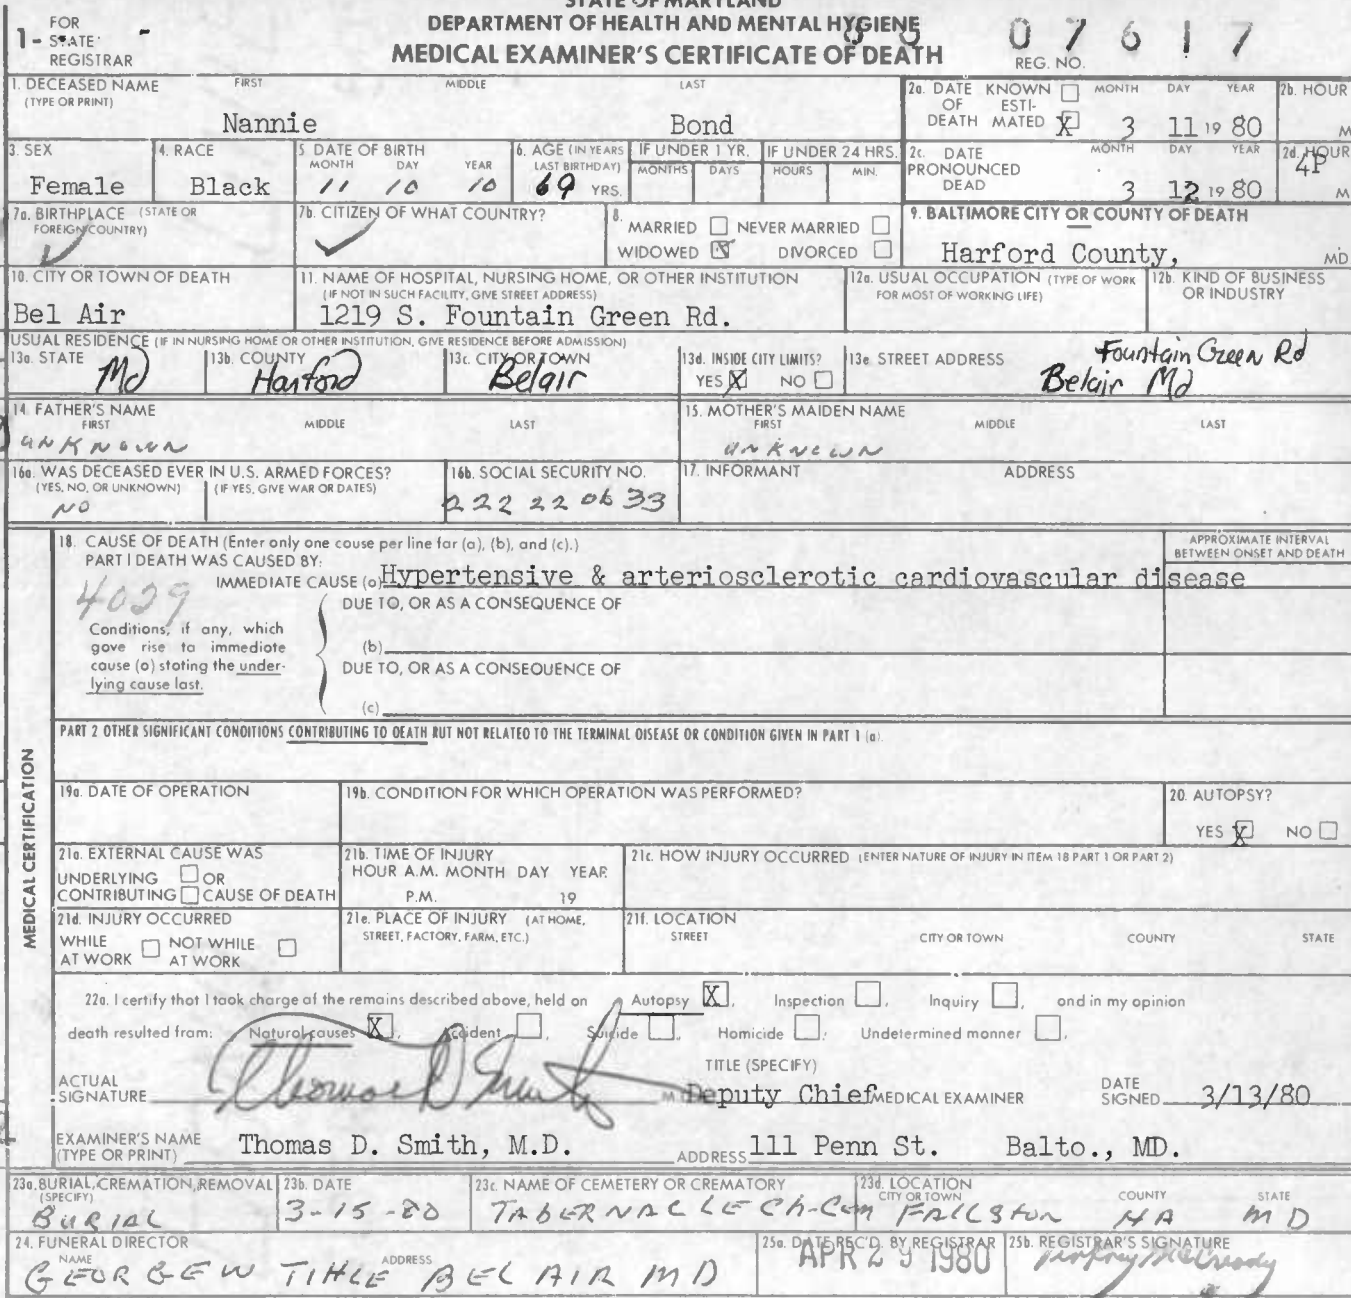 STATE OF MARYLAND
DEPARTMENT OF HEALTH AND MENTAL HYGIENE
MEDICAL EXAMINER'S CERTIFICATE OF DEATH
1- FOR STATE REGISTRAR
07617
REG. NO.
1. DECEASED NAME (TYPE OR PRINT) FIRST MIDDLE LAST
Nannie Bond
2a. DATE OF DEATH KNOWN ☐ ESTIMATED ☒ MONTH DAY YEAR
3 11 19 80
2b. HOUR
M
3. SEX
Female
4. RACE
Black
5 DATE OF BIRTH
MONTH DAY YEAR
11 10 10
6. AGE (IN YEARS LAST BIRTHDAY)
69 YRS.
IF UNDER 1 YR.
MONTHS DAYS
IF UNDER 24 HRS.
HOURS MIN.
2c. DATE PRONOUNCED DEAD MONTH DAY YEAR
3 12 19 80
2d. HOUR
4P
M
7a. BIRTHPLACE (STATE OR FOREIGN COUNTRY)
✓
7b. CITIZEN OF WHAT COUNTRY?
✓
8.
MARRIED ☐ NEVER MARRIED ☐
WIDOWED ☒ DIVORCED ☐
9. BALTIMORE CITY OR COUNTY OF DEATH
Harford County, MD
10. CITY OR TOWN OF DEATH
Bel Air
11. NAME OF HOSPITAL, NURSING HOME, OR OTHER INSTITUTION
(IF NOT IN SUCH FACILITY, GIVE STREET ADDRESS)
1219 S. Fountain Green Rd.
12a. USUAL OCCUPATION (TYPE OF WORK
FOR MOST OF WORKING LIFE)
12b. KIND OF BUSINESS
OR INDUSTRY
USUAL RESIDENCE (IF IN NURSING HOME OR OTHER INSTITUTION, GIVE RESIDENCE BEFORE ADMISSION)
13a. STATE
Md
13b. COUNTY
Harford
13c. CITY OR TOWN
Belair
13d. INSIDE CITY LIMITS?
YES ☒ NO ☐
13e. STREET ADDRESS
Fountain Green Rd
Belair Md
14. FATHER'S NAME
FIRST MIDDLE LAST
UNKNOWN
15. MOTHER'S MAIDEN NAME
FIRST MIDDLE LAST
UNKNOWN
16a. WAS DECEASED EVER IN U.S. ARMED FORCES?
(YES, NO, OR UNKNOWN) (IF YES, GIVE WAR OR DATES)
NO
16b. SOCIAL SECURITY NO.
222 22 0633
17. INFORMANT ADDRESS
MEDICAL CERTIFICATION
18. CAUSE OF DEATH (Enter only one cause per line for (a), (b), and (c).)
APPROXIMATE INTERVAL
BETWEEN ONSET AND DEATH
PART I DEATH WAS CAUSED BY:
IMMEDIATE CAUSE (a) Hypertensive & arteriosclerotic cardiovascular disease
4029
Conditions, if any, which
gave rise to immediate
cause (a) stating the under-
lying cause last.
DUE TO, OR AS A CONSEQUENCE OF
(b)
DUE TO, OR AS A CONSEQUENCE OF
(c)
PART 2 OTHER SIGNIFICANT CONDITIONS CONTRIBUTING TO DEATH BUT NOT RELATED TO THE TERMINAL DISEASE OR CONDITION GIVEN IN PART 1 (a).
19a. DATE OF OPERATION
19b. CONDITION FOR WHICH OPERATION WAS PERFORMED?
20. AUTOPSY?
YES ☒ NO ☐
21a. EXTERNAL CAUSE WAS
UNDERLYING ☐ OR
CONTRIBUTING ☐ CAUSE OF DEATH
21b. TIME OF INJURY
HOUR A.M. MONTH DAY YEAR
P.M. 19
21c. HOW INJURY OCCURRED (ENTER NATURE OF INJURY IN ITEM 18 PART 1 OR PART 2)
21d. INJURY OCCURRED
WHILE AT WORK ☐ NOT WHILE AT WORK ☐
21e. PLACE OF INJURY (AT HOME,
STREET, FACTORY, FARM, ETC.)
21f. LOCATION
STREET CITY OR TOWN COUNTY STATE
22a. I certify that I took charge of the remains described above, held on Autopsy ☒, Inspection ☐, Inquiry ☐, and in my opinion
death resulted from: Natural causes ☒, Accident ☐, Suicide ☐, Homicide ☐, Undetermined manner ☐.
ACTUAL SIGNATURE Thomas D Smith
TITLE (SPECIFY)
Deputy Chief MEDICAL EXAMINER
DATE SIGNED 3/13/80
EXAMINER'S NAME (TYPE OR PRINT) Thomas D. Smith, M.D.
ADDRESS 111 Penn St. Balto., MD.
23a. BURIAL, CREMATION, REMOVAL (SPECIFY)
BURIAL
23b. DATE
3-15-80
23c. NAME OF CEMETERY OR CREMATORY
TABERNACLE Ch-Cem
23d. LOCATION
CITY OR TOWN COUNTY STATE
FALLSTON HA MD
24. FUNERAL DIRECTOR
NAME ADDRESS
GEORGE W TIHLE BEL AIR MD
25a. DATE REC'D. BY REGISTRAR
APR 1980
25b. REGISTRAR'S SIGNATURE